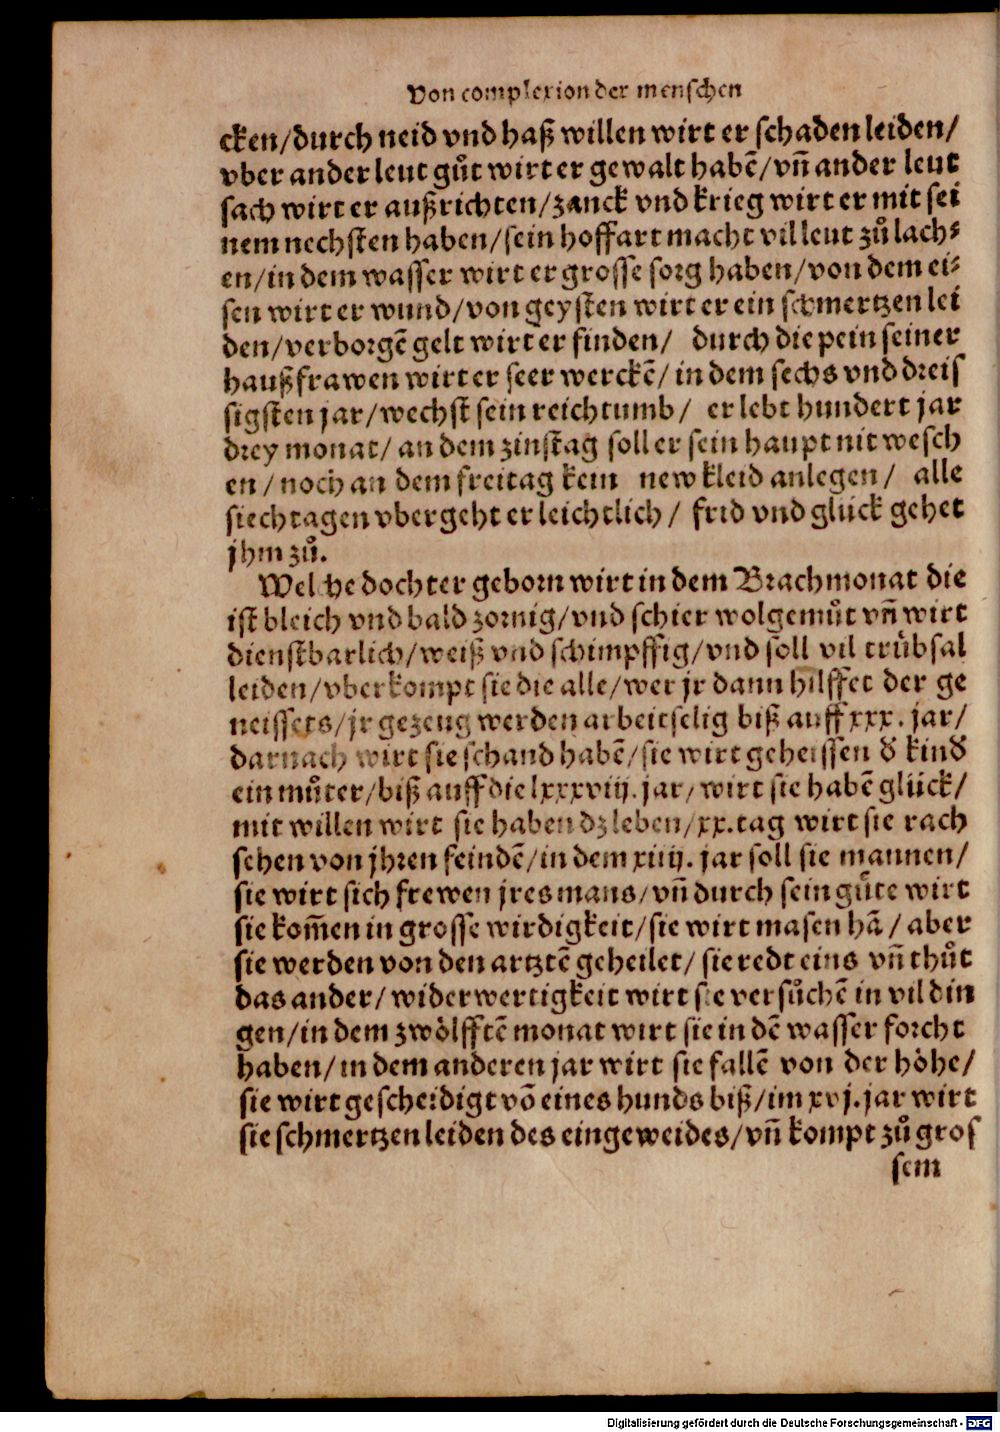 Von complexion der menschen
cken/durch neid vnd haß willen wirt er schaden leiden/
vber ander leut gůt wirt er gewalt habē/vñ ander leut
sach wirt er außrichten/zanck vnd krieg wirt er mit sei
nem nechsten haben/sein hoffart macht vil leut zů lach⸗
en/in dem wasser wirt er grosse sorg haben/von dem ei⸗
sen wirt er wund/von geysten wirt er ein schmertzen lei
den/verborgē gelt wirt er finden/ durch die pein seiner
haußfrawen wirt er seer werckē/in dem sechs vnd dreis
sigsten jar/wechst sein reichtumb/ er lebt hundert jar
drey monat/an dem zinstag soll er sein haupt nit wesch
en/noch an dem freitag kein new kleid anlegen/ alle
siechtagen vbergeht er leichtlich/ frid vnd glück gehet
jhm zů.
Welche dochter geborn wirt in dem Brachmonat die
ist bleich vnd bald zornig/vnd schier wolgemůt vñ wirt
dienstbarlich/weiß vnd schimpffig/vnd soll vil trübsal
leiden/vberkompt sie die alle/wer jr dann hilffet der ge
neissets/jr gezeug werden arbeitselig biß auff xxx. jar/
darnach wirt sie schand habē/sie wirt geheissen d̕ kind̕
ein můter/biß auff die lxxxviij. jar/wirt sie habē glück/
mit willen wirt sie haben dz leben/xx.tag wirt sie rach
sehen von jhren feindē/in dem xiiij. jar soll sie mannen/
sie wirt sich frewen jres mans/vñ durch sein gůte wirt
sie kom̄en in grosse wirdigkeit/sie wirt masen hā/ aber
sie werden von den artztē geheilet/ sie redt eins vñ thůt
das ander/widerwertigkeit wirt sie versůchē in vil din
gen/in dem zwölfftē monat wirt sie in dē wasser forcht
haben/in dem anderen jar wirt sie fallē von der höhe/
sie wirt gescheidigt vō eines hunds biß/im xvj. jar wirt
sie schmertzen leiden des eingeweides/vñ kompt zů gros
sem
Digitalisierung gefördert durch die Deutsche Forschungsgemeinschaft - DFG